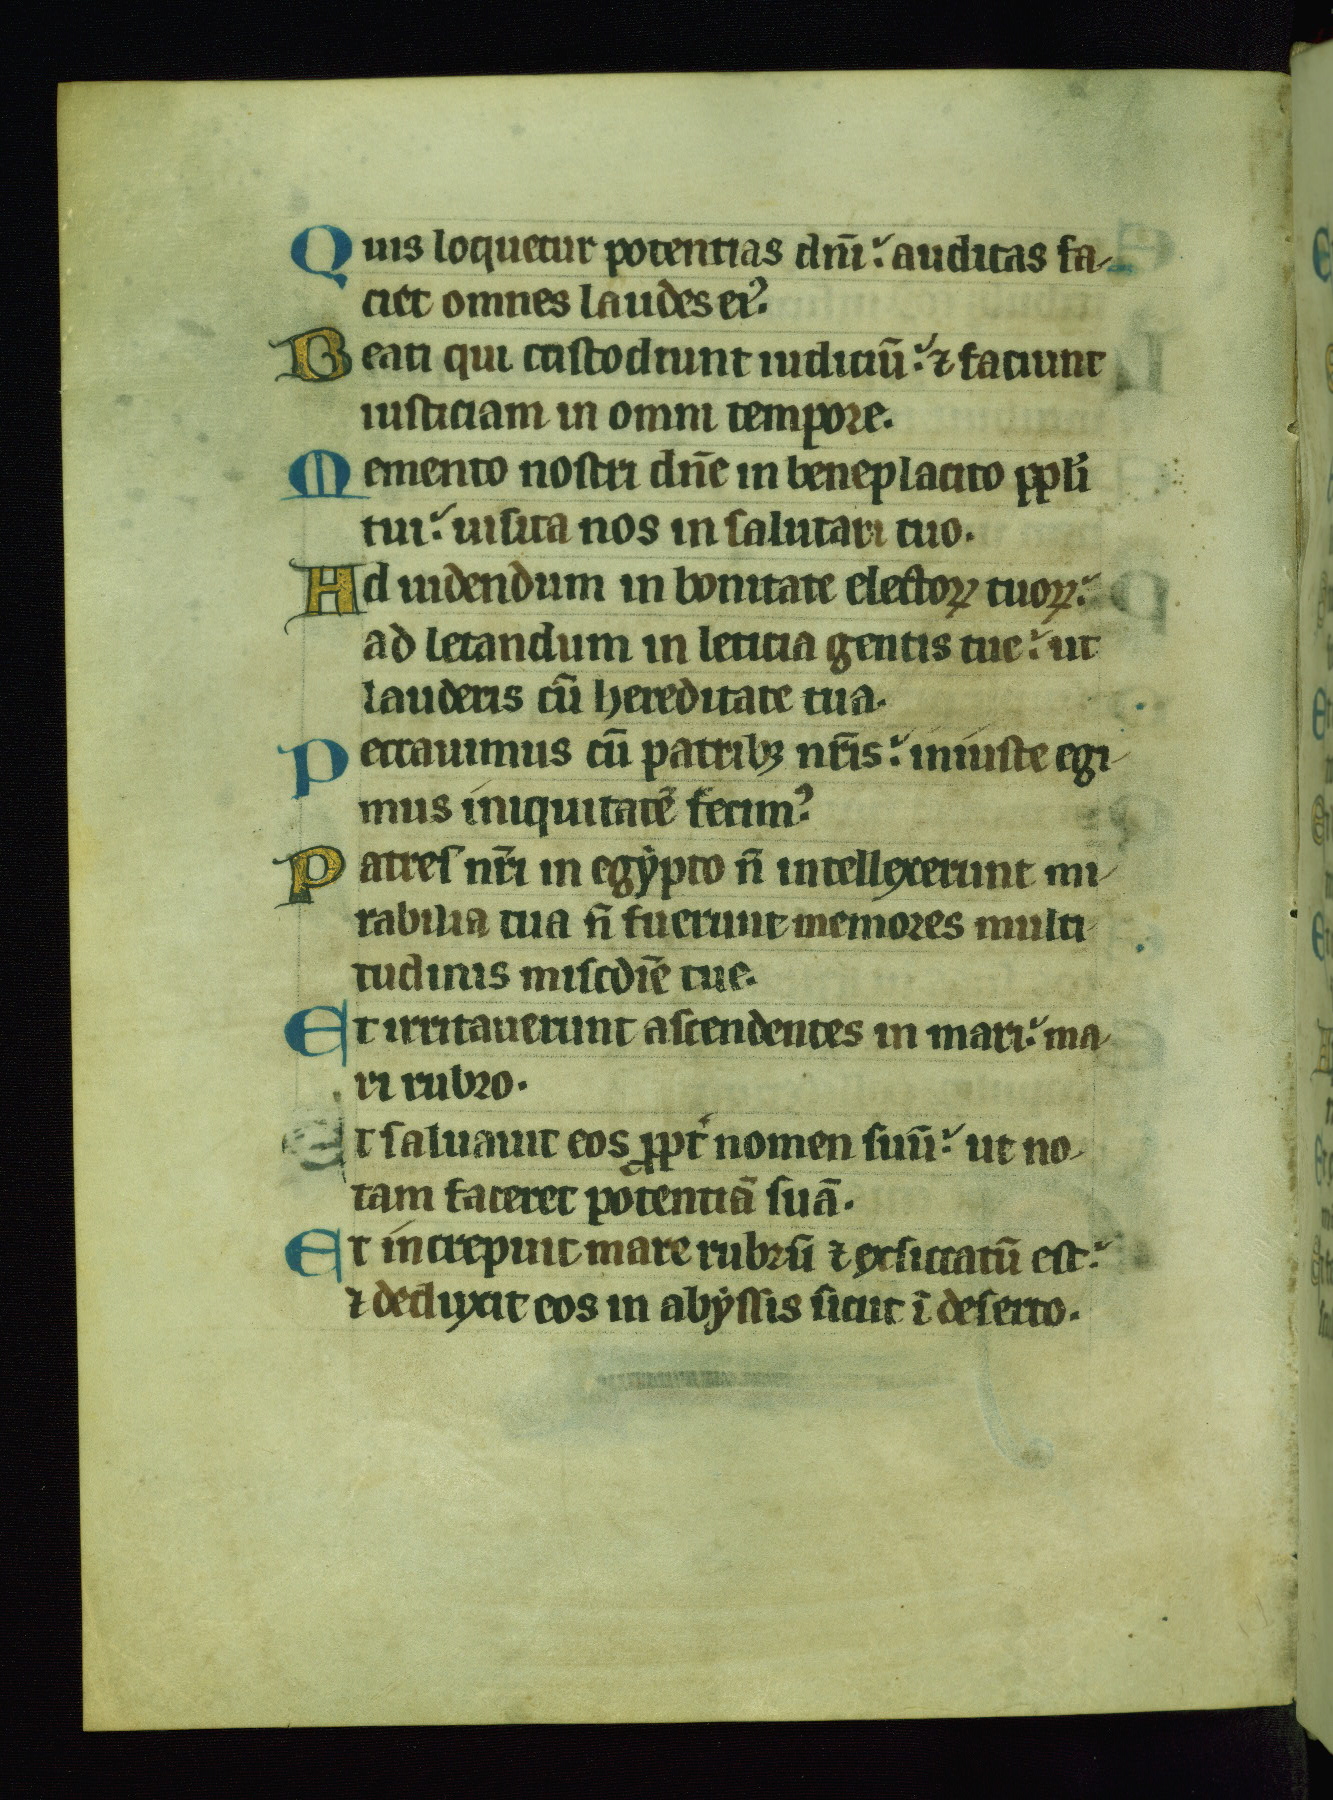 Quis loquetur potentias dñi: auditas fa-
ciet omnes laudes eiꝰ.
Beati qui custodiunt iudiciū: ⁊ faciunt
iusticiam in omni tempore.
Memento nostri dñe in beneplacito ppli
tui: uisita nos in salutari tuo.
Ad uidendum in bonitate electoꝝ tuoꝝ:
ad letandum in leticia gentis tue: ut
lauderis cū hereditate tua.
Peccauimus cū patribꝫ nr̄is: iniuste egi
mus iniquitatē fecimꝰ.
Patres nr̄i in egẏpto ñ intellexerunt mi
rabilia tua ñ fuerunt memores multi
tudinis misc̄die tue.
Et irritauerunt ascendentes in mari: ma
ri rubro.
Et saluauit eos ꝓpt̄ nomen suū: ut no
tam faceret potentiā suā.
Et increpuit mare rubrū ⁊ exsiccatū est:
⁊ deduxit eos in abẏssis sicut ī deserto.